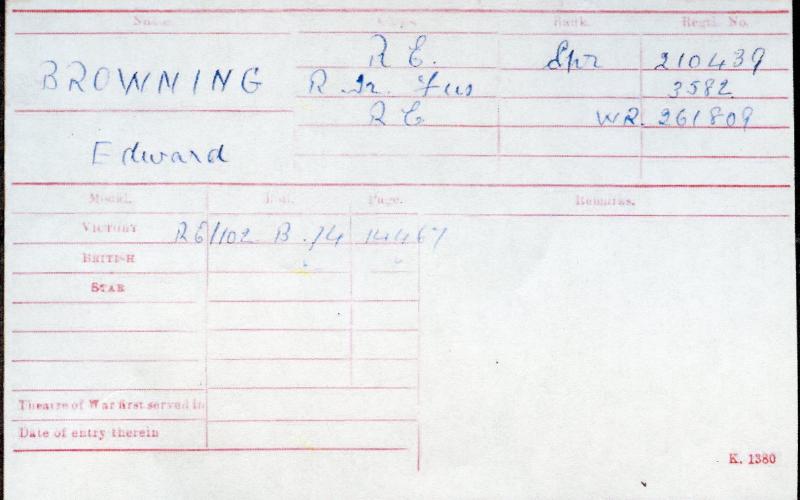 Name. Corps. Rank. Regtl. No.
R E. Spr 210439
BROWNING R. Ir. Fus 3582
R E WR. 261809
Edward
Medal. Roll. Page. Remarks.
VICTORY RE/102 B.74 14467
BRITISH
STAR
Theatre of War first served in
Date of entry therein
K. 1380